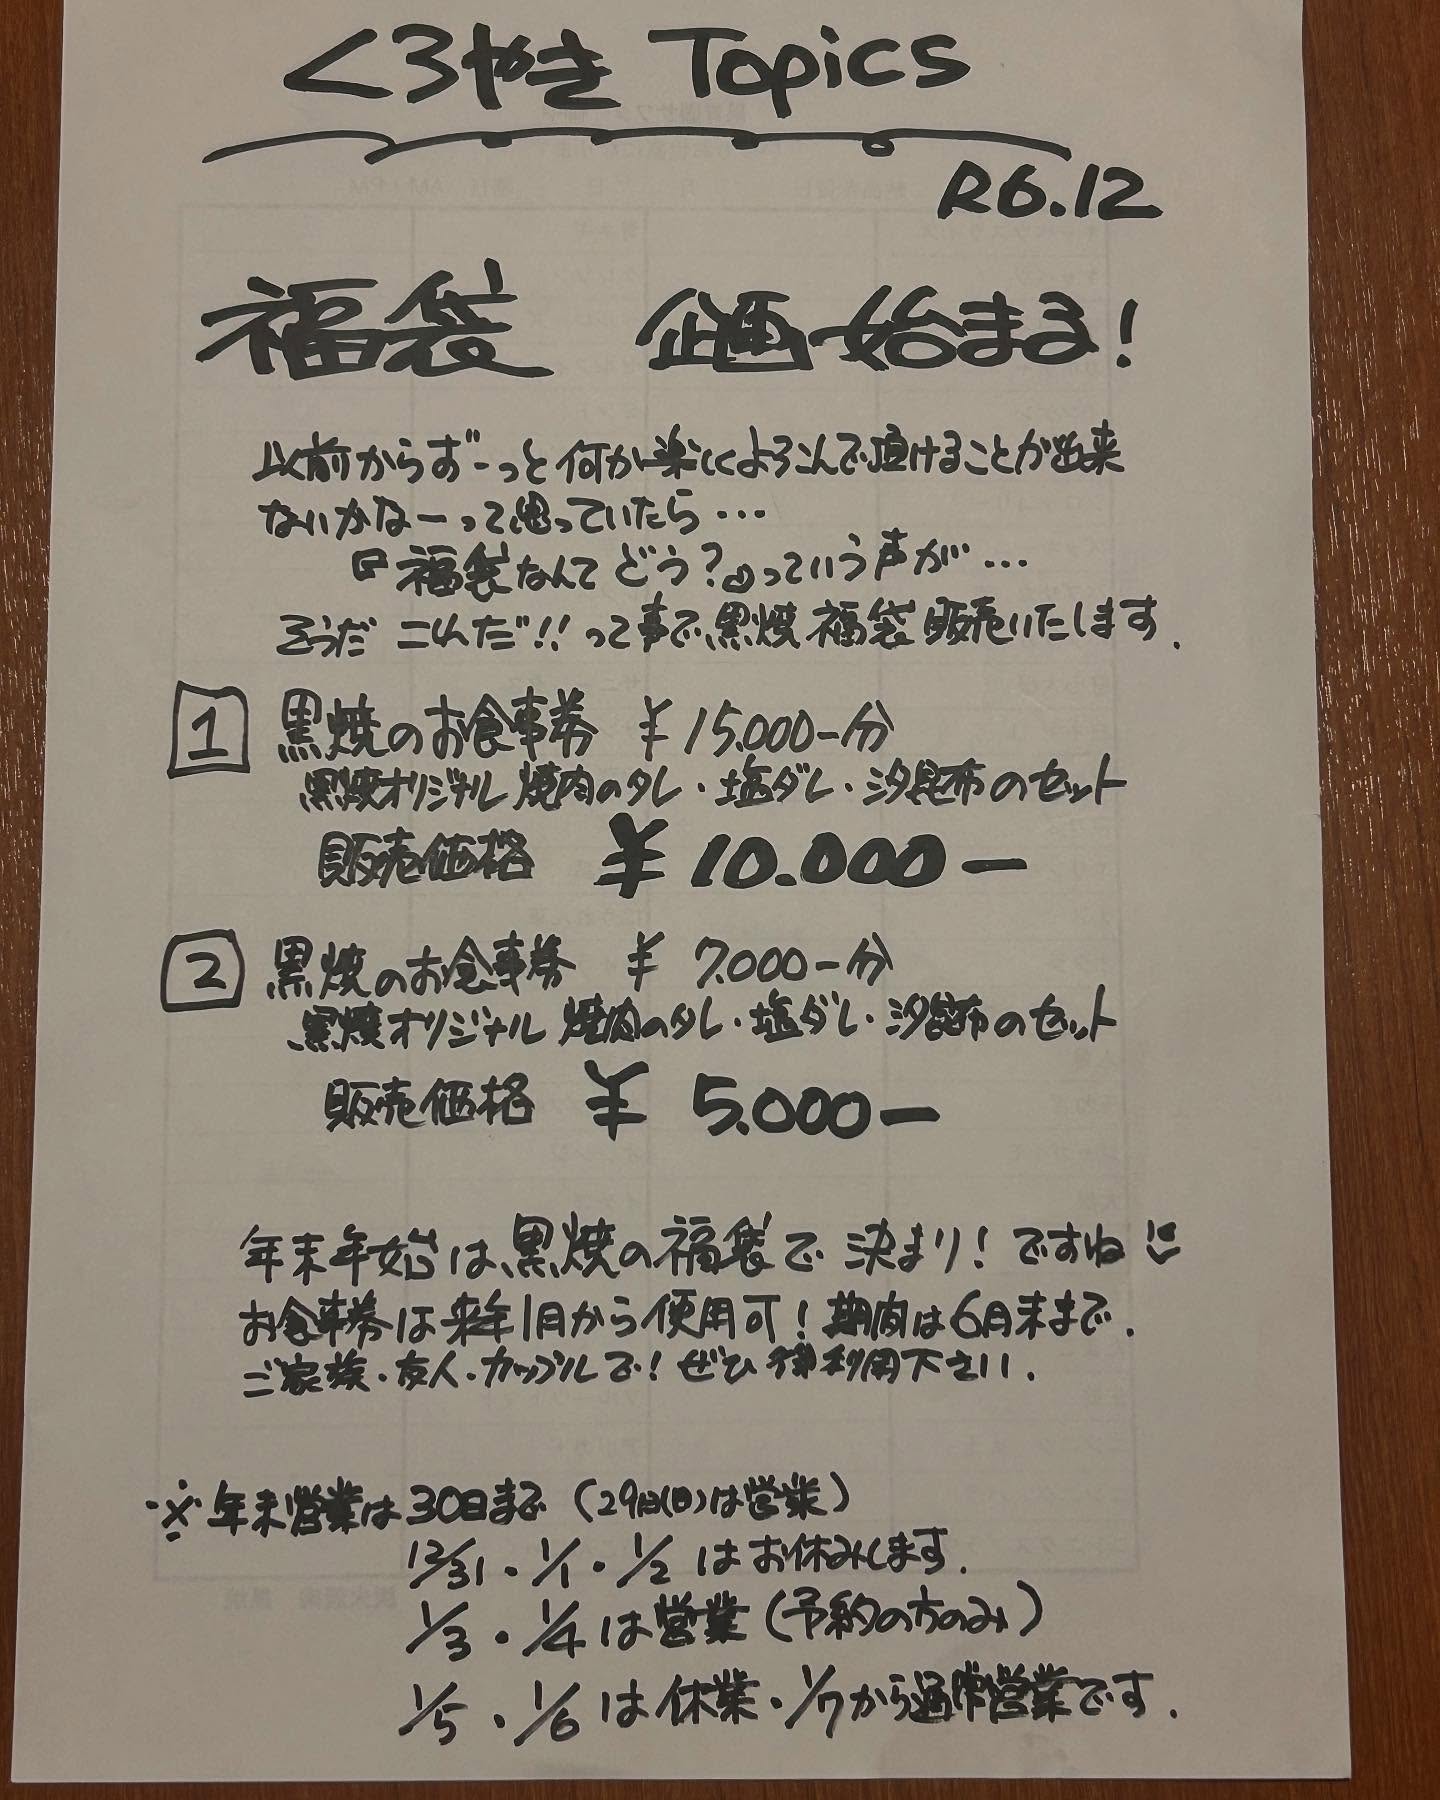 くろやき Topics
R6.12
福袋 企画始まる!
以前からずーっと何か楽しくよろこんで頂けることが出来
ないかなーって思っていたら...
『福袋なんてどう?』っていう声が...
そうだ これだ!!って事で、黒焼 福袋 販売いたします.
1 黒焼のお食事券 ¥15.000-分
黒焼オリジナル 焼肉のタレ・塩ダレ・汐昆布のセット
販売価格 ¥10.000-
2 黒焼のお食事券 ¥7.000-分
黒焼オリジナル 焼肉のタレ・塩ダレ・汐昆布のセット
販売価格 ¥5.000-
年末年始は、黒焼の福袋で決まり!ですね
お食事券は来年1月から使用可!期間は6月末まで.
ご家族・友人・カップルで!ぜひ御利用下さい.
※年末営業は30日まで(29日(日)は営業)
12/31・1/1・1/2はお休みします.
1/3・1/4は営業(予約の方のみ)
1/5・1/6は休業・1/7から通常営業です.